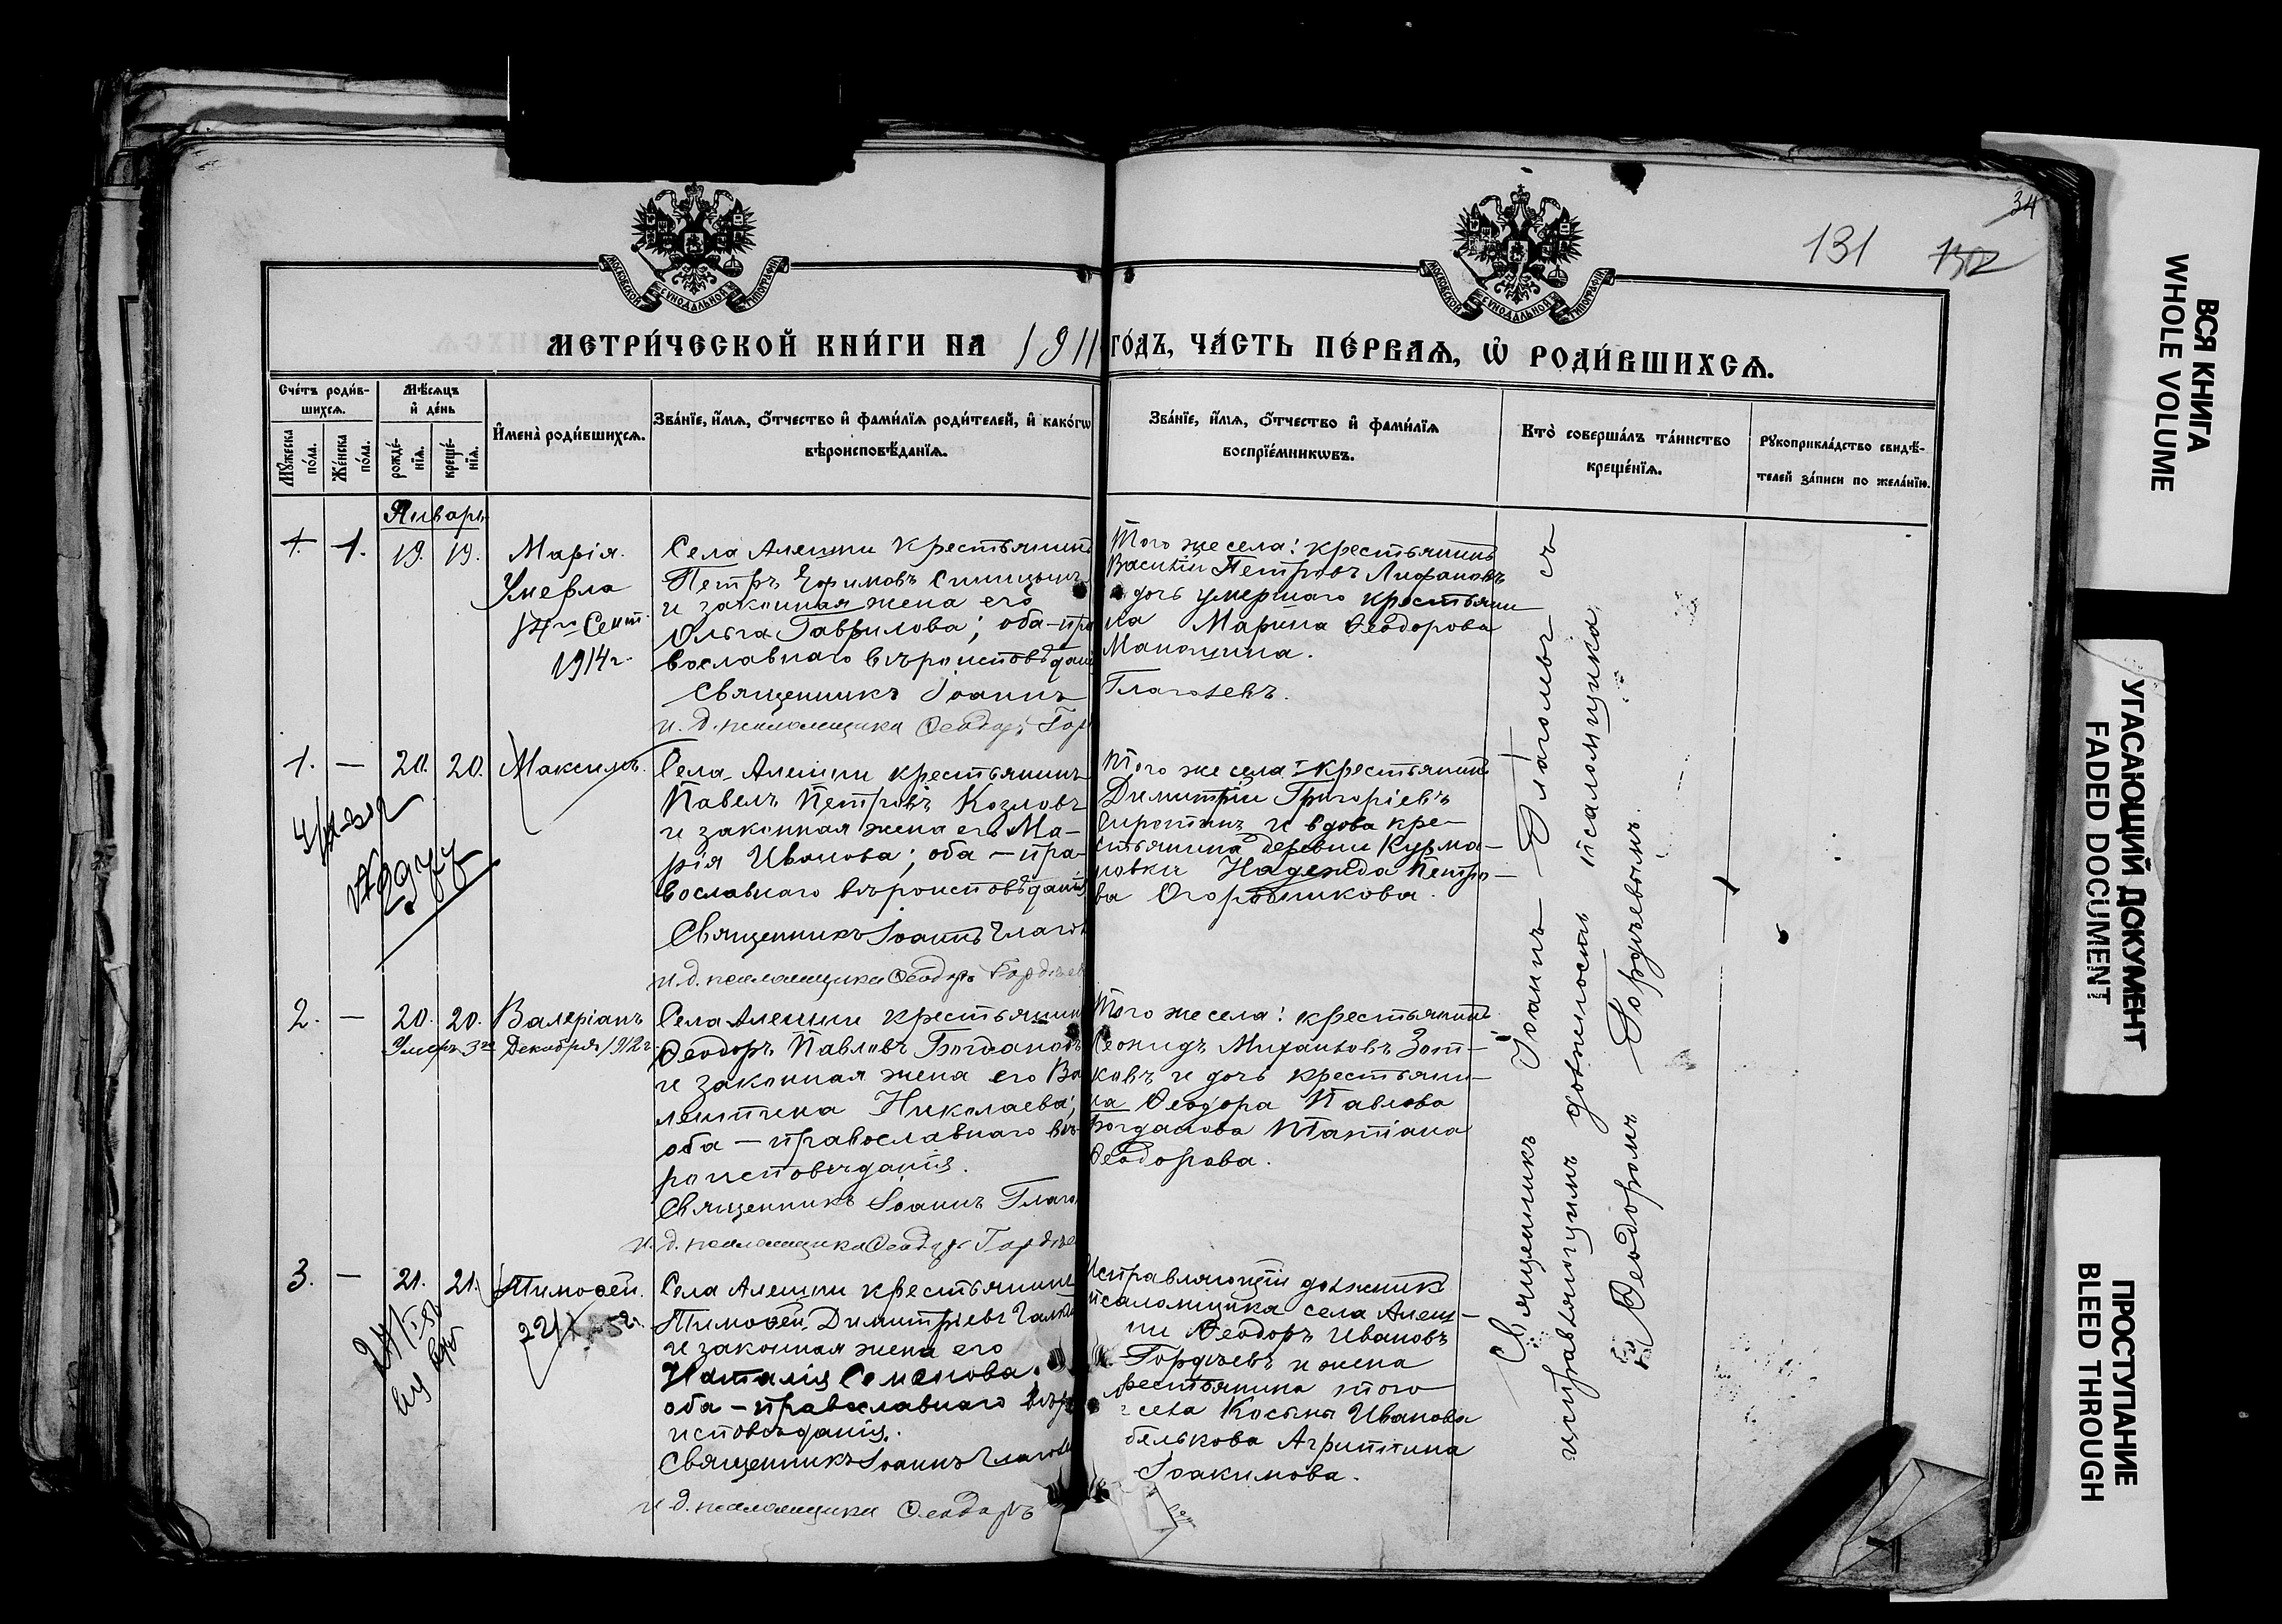 34
131
132
МОСКОВСКОЙ СѴНОДАЛЬНОЙ ТИПОГРАФІИ
МОСКОВСКОЙ СѴНОДАЛЬНОЙ ТИПОГРАФІИ
МЕТРИ́ЧЕСКОЙ КНИ́ГИ НА 1911 ГО́ДЪ, ЧА́СТЬ ПЕ́РВАѦ, Ѡ҆ РОДИ́ВШИХСѦ.
Сче́тъ роди́в-
шихсѧ.
Мꙋ́жеска по́ла.
Же́нска по́ла.
Мѣ́сѧцъ
и҆ де́нь
рожде́-
нїѧ.
креще́-
нїѧ.
И҆мена̀ роди́вшихсѧ.
Зва́нїе, и҆́мѧ, ѻ҆́тчество и҆ фами́лїѧ роди́телей, и҆ како́гѡ
вѣроисповѣ́данїѧ.
Зва́нїе, и҆́мѧ, ѻ҆́тчество и҆ фами́лїѧ
воспрїе́мникѡвъ.
Кто̀ соверша́лъ та́инство
креще́нїѧ.
Рꙋкоприкла́дство свидѣ́-
телей за́писи по жела́нїю.
Январь
1. 1. 19. 19. Марія.
Умерла
14го Сент.
1914 г.
Села Алешни крестьянинъ
Петръ Ефимовъ Синицынъ
и законная жена его
Ольга Гаврилова; оба-пра
вославнаго вѣроисповѣдані
Священникъ Іоаннъ Глаголевъ.
и. д. псаломщика Ѳеодоръ Гор
Того же села: крестьянинъ
Василій Петровъ Лифановъ
дочь умершаго крестьяни
на Марина Ѳеодорова
Маношина.
1. — 20. 20. Максимъ.
Села Алешни крестьянинъ
Павелъ Петровъ Козловъ
и законная жена его Ма-
рія Иванова; оба-пра-
вославнаго вѣроисповѣданія
Священникъ Іоаннъ Глагол
и. д. псаломщика Ѳеодоръ Гордѣев
Того же села: крестьянинъ
Димитрій Григоріевъ
Сиротинъ и вдова кре-
стьянина деревни Курма-
новки Надежда Петро-
ва Огородникова.
2. — 20. 20. Валеріанъ
Умеръ 3го Декабря 1912 г.
Села Алешни крестьянин
Ѳеодоръ Павловъ Богдановъ
и законная жена его Ва
лентина Николаева;
оба-православнаго вѣ-
роисповѣданія.
Священникъ Іоаннъ Глаго
и. д. псаломщика Ѳеодоръ Гордѣе
Того же села: крестьянинъ
Леонидъ Михаиловъ Зот-
ковъ и дочь крестьяни-
на Ѳеодора Павлова
Богданова Татіана
Ѳеодорова.
3. — 21. 21. Тимоѳей.
Села Алешни крестьянинъ
Тимоѳей Димитріевъ
и законная жена его
Наталія Семенова;
оба-православнаго вѣро
исповѣданія.
Священникъ Іоаннъ Глаголе
и. д. псаломщика Ѳеодоръ
Исправляющій должник
псаломщика села Алеш-
ни Ѳеодоръ Ивановъ
Гордѣевъ и жена
рестьянина того
села Косьмы Иванова
Агриппина
Іоакимова.
Священникъ Іоаннъ Глаголевъ съ
исправляющимъ должность псаломщика
Ѳеодоромъ Гордѣевымъ.
ВСЯ КНИГА
WHOLE VOLUME
УГАСАЮЩИЙ ДОКУМЕНТ
FADED DOCUMENT
ПРОСТУПАНИЕ
BLEED THROUGH